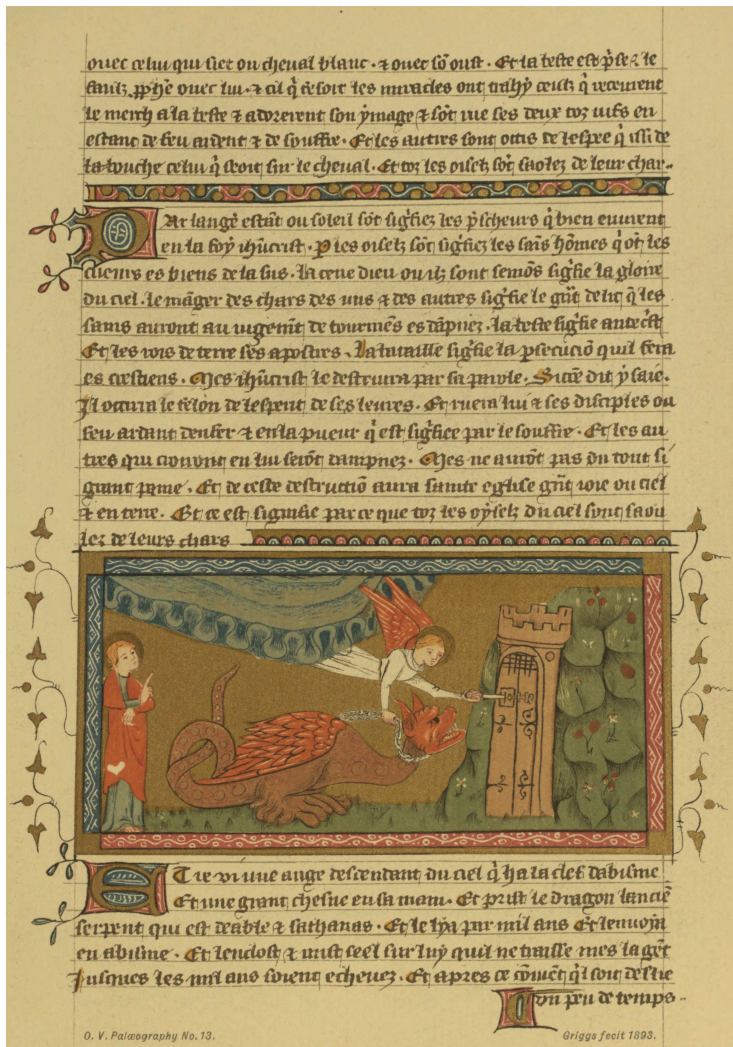 ouec celui qui siet ou cheual blanc · ⁊ ouec sō oust · Et la beste est p̃se ⁊ le
faulz p̃phē ouec lui · ⁊ cil q̃ fesoit les miracles ont trahy ceulz q̃ receurent
le merch a la beste ⁊ adorerent son ymage ⁊ sōt rue ses deux toz uifs en
estanc de feu ardent ⁊ de souffre · Et les autres sont occis de lespee q̃ issi de
la bouche celui q̃ seoit sur le cheual · Et toz les oiselz sōt saolez de leur char
Par lange estāt ou soleil sōt sig̃fiez les p̃scheurs q̃ bien euurent
en la foy ihūcrist · P les oiselz sōt sig̃fiez les sains hōmes q̃ ōt les
cuers es biens de la sus · la cene dieu ou ilz sont semōs sig̃fie la gloire
du ciel · le māger des chars des uns ⁊ des autres sig̃fie le g̃nt delit q̃ les
sains auront au iugemt̃ de tourmēs es dāpnez · la beste sig̃fie antec̃st
Et les rois de terre ses apostres · la bataille sig̃fie la p̃secuciō quil fera
es crestiens · Mes ihūcrist le destruira par sa parole · Sicōe dit ysaie ·
Il occirra le felon de lesperit de ses leures · Et ruera lui ⁊ ses disciples ou
feu ardant denfer ⁊ en la pueur q̃ est sig̃fiee par le souffre · Et les au
tres qui croiront en lui serōt dampnez · Mes ne aurōt pas du tout si
grant paine · Et de ceste destructiō aura sainte eglise g̃nt ioie ou ciel
⁊ en terre · Et ce est signifie par ce que toz les oyselz du ciel sont saou
lez de leurs chars
Et ie vi une ange descendant du ciel q̃ ha la clef dabisme
Et une grant chesne en sa main · Et prist le dragon lanciē
serpent qui est deable ⁊ sathanas · Et le lya par mil ans Et lenuoia
en abisme · Et lenclost ⁊ mist seel sur luy quil ne traisse mes la gēt
Jusques les mil ans soient echeuez · Et apres ce cōuiēt q̃l soit deslie
Un peu de temps
O. V. Palæography No. 13.
Griggs fecit 1893.